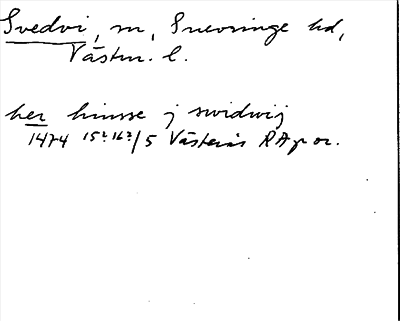 Svedvi, sn, Snevringe hd,
Västm. l.
her hinsse j swidwij
1474 15? 16?/5 Västerås RA p or.